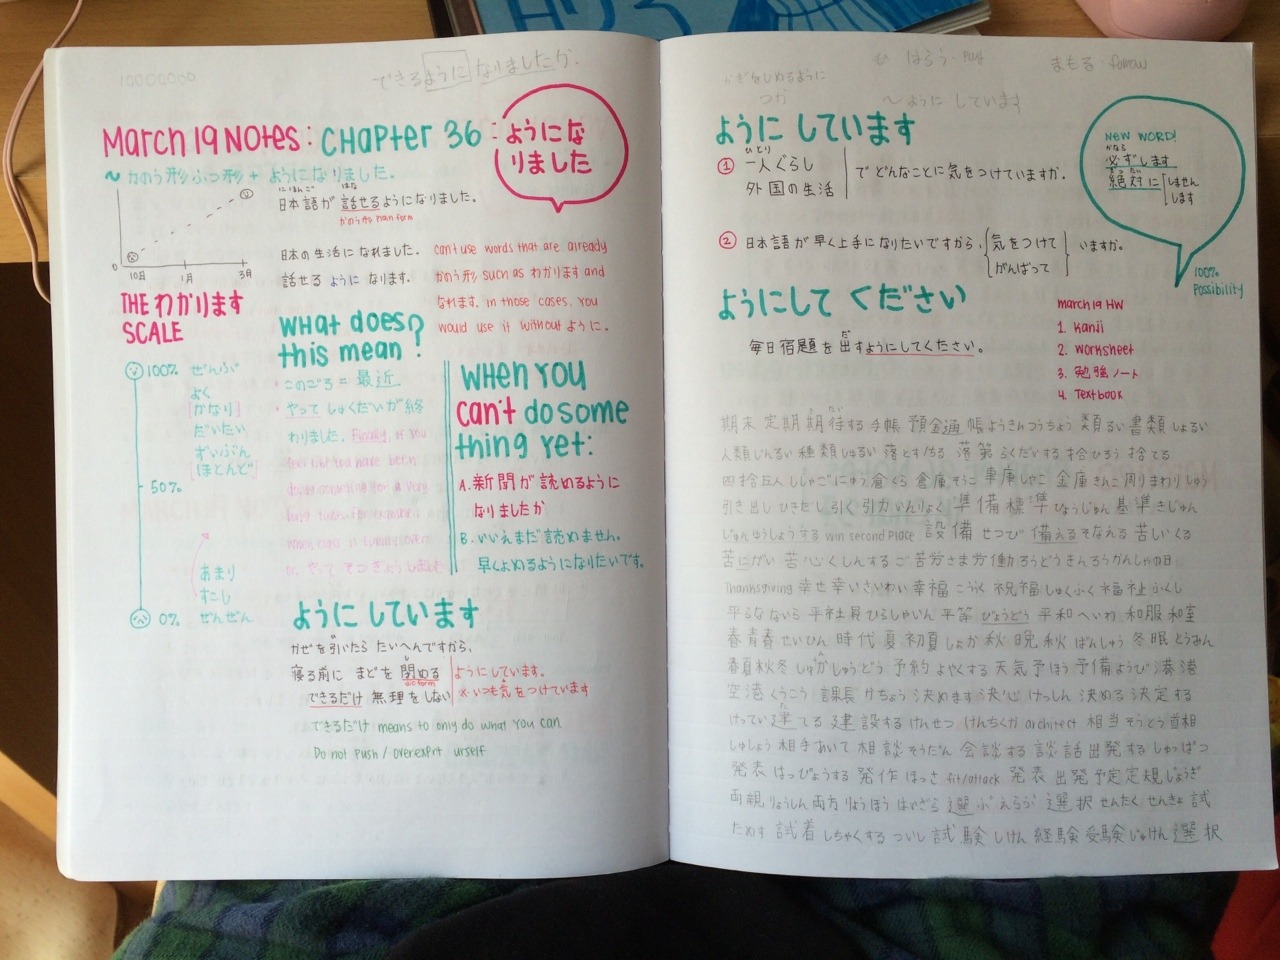 10000000
できるようになりましたか.
March 19 Notes: Chapter 36:
ようにな
りました
~ かのう形ふつ形 + ようになりました.
にほんご はな
日本語が 話せるようになりました。
かのう形 plain form
0
10月 1月 3月
日本の生活になれました。
話せる ように なります.
can't use words that are already
かのう形 such as わかります and
なれます. In those cases, you
would use it without ように.
THE わかります
SCALE
100% ぜんぶ
よく
[かなり]
だいたい
ずいぶん
[ほとんど]
50%
あまり
すこし
0% ぜんぜん
What does
this mean?
・このごろ = 最近
・やって しゅくだいが終
わりました. Finally, as if you
feel like you have been
doing something for a very
long time. For example
when class is finally over
やって
When you
can't do some
thing yet:
A. 新聞が 読めるように
なりましたか
B. いいえまだ読めません。
早くよめるようになりたいです。
ように しています
かぜを引いたら たいへんですから,
寝る前に まどを 閉める ようにしています.
dic form
できるだけ 無理をしない ※いつも気をつけています
できるだけ means to only do what you can
Do not push / overexert urself
はらう・pay まもる・follow
かぎをしめるように
つか ~ように しています
ように しています
ひとり
① 一人ぐらし
外国の生活
でどんなことに気をつけていますか.
② 日本語が早く上手になりたいですから, 気をつけて いますか.
がんばって
NEW WORD!
かなら
必ずします
ぜったい
絶対に しません
します
100%
Possibility
ようにして ください
だ
毎日宿題を出すようにしてください。
March 19 HW
1. Kanji
2. Worksheet
3. 勉強ノート
4. Textbook
期末 定期 期待する 手帳 預金通帳 ようきんつうちょう 類 るい 書類 しょるい
人類 じんるい 種類 しゅるい 落とす/ちる 落第 らくだいする 拾ひろう 捨てる
四捨五入 ししゃごにゅう 倉くら 倉庫 そうこ 車庫 しゃこ 金庫 きんこ 周り まわり しゅう
引き出し ひきだし 引く 引力 いんりょく 準備 標準 ひょうじゅん 基準 きじゅん
じゅんゆうしょうする win second place 設備 せつび 備える そなえる 苦しい くる
苦にがい 苦心 くしんする ご苦労さま 労働 ろうどう きんろうかんしゃの日
Thanksgiving 幸せ 幸い さいわい 幸福 こうふく 祝福 しゅくふく 福祉 ふくし
平らな たいら 平社員 ひらしゃいん 平等 びょうどう 平和 へいわ 和服 和室
春 青春 せいしゅん 時代 夏 初夏 しょか 秋 晩秋 ばんしゅう 冬眠 とうみん
春夏秋冬 しゅんかしゅうとう 予約 よやくする 天気予ほう 予備 ようび 湊 港
空港 くうこう 課長 かちょう 決めます 決心 けっしん 決める 決定する
けってい 建てる 建設する けんせつ けんちくか architect 相当 そうとう 首相
しゅしょう 相手 あいて 相談 そうだん 会談する 談話 出発する しゅっぱつ
発表 はっぴょうする 発作 ほっさ fit/attack 発表 出発 予定 定規 じょうぎ
両親 りょうしん 両方 りょうほう はいざら 選ぶ えらぶ 選択 せんたく せんきょ 試
ためす 試着 しちゃくする ついし 試験 しけん 経験 受験 じゅけん 選択